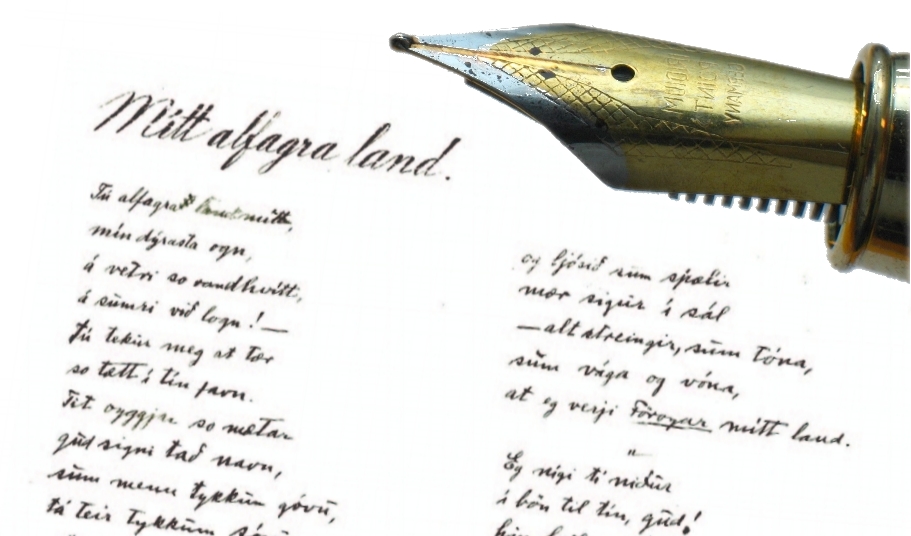 Mítt alfagra land.
Tú alfagra land mítt,
mín dýrasta ogn,
á vetri so randhvítt,
á sùmri við logn! —
Tú tekùr meg at tær
so tætt í tín favn.
Tit oyggjar so mætar
gùd signi tað navn,
sùm menn tykkùm góvù,
tá teir tykkùm sóù
og ljósið sùm spælir
mær sigùr í sál
— alt streingir, sùm tóna,
sùm vága og vóna,
at eg verji Föroyar mítt land.
"
Eg nígi tí niðùr
í bön til tín, gùd!